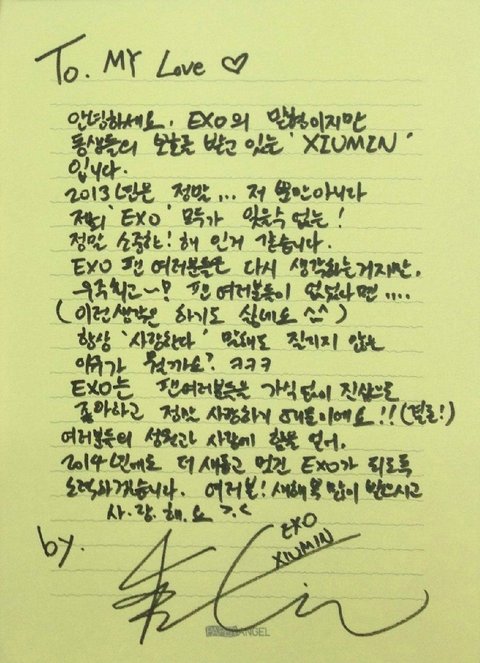 To. MY Love ♡
안녕하세요, EXO의 맏형이지만
동생들의 보호를 받고 있는 'XIUMIN'
입니다.
2013년은 정말... 저 뿐만아니라
저희 'EXO' 모두가 잊을수 없는!
정말 소중한! 해 인거 같습니다.
EXO 팬 여러분들은 다시 생각하는거지만,
우주최고~! 팬 여러분들이 없었다면....
(이런생각은 하기도 싫네요 ^^)
항상 '사랑한다' 말해도 질리지 않는
이유가 뭘까요? ㅋㅋㅋ
EXO는 팬여러분들은 가식없이 진심으로
좋아하고 정말 사랑하기 때문이에요!! (결론!)
여러분들의 성원과 사랑에 힘을 얻어,
2014년에도 더 새롭고 멋진 EXO가 되도록
노력하겠습니다. 여러분! 새해복 많이 받으시고
사.랑.해.요 >.<
by.
EXO
XIUMIN
PAPER ANGEL